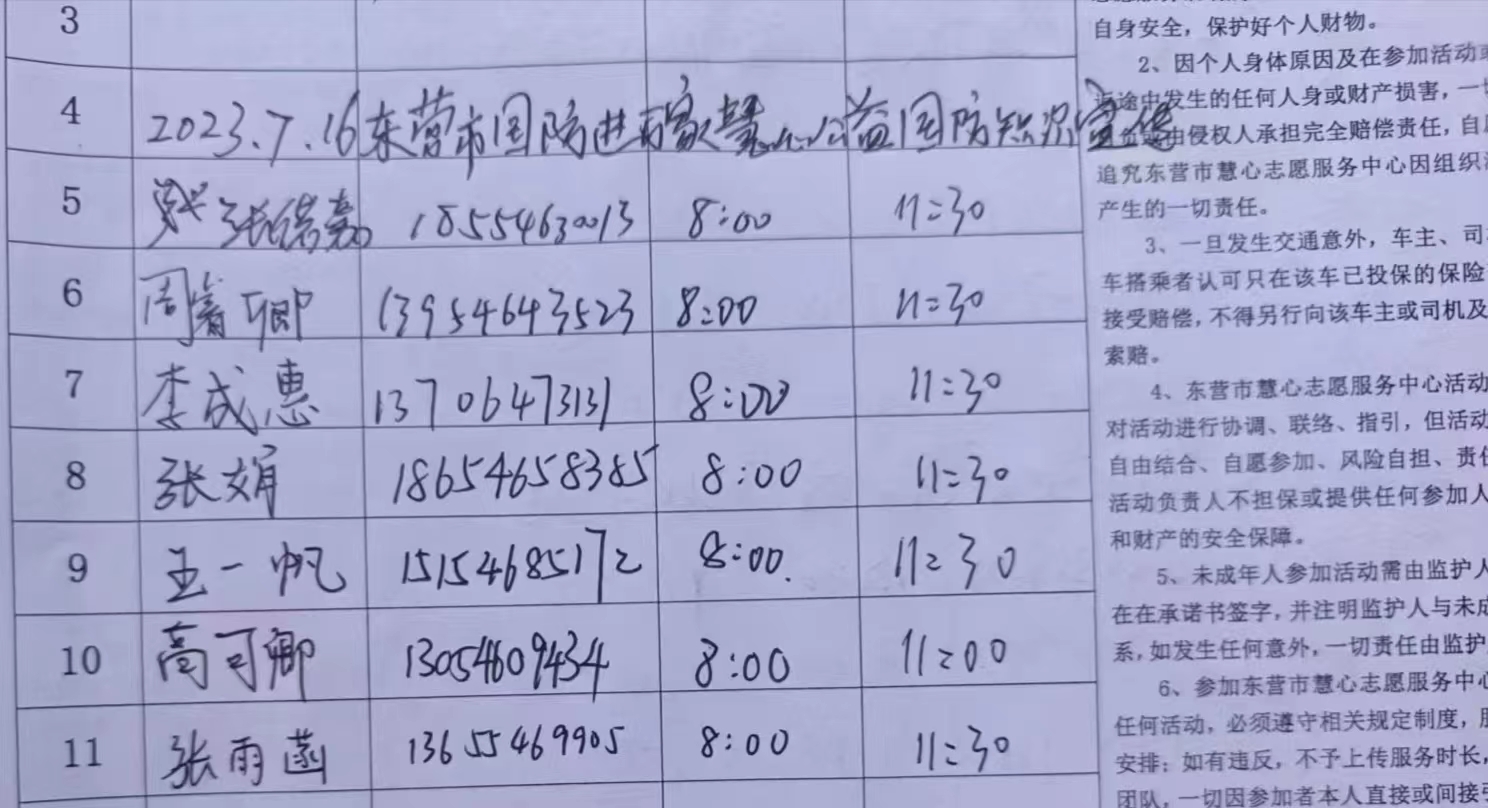 3
4 2023.7.16东营市国防进万家慧心公益国防知识宣传
5 张诺嘉 18554630013 8:00 11:30
6 周睿卿 13954643523 8:00 11:30
7 李成惠 13706473131 8:00 11:30
8 张娟 18654658385 8:00 11:30
9 王一帆 15154685172 8:00. 11:30
10 高可卿 13054609434 8:00 11:00
11 张雨菡 13655469905 8:00 11:30
自身安全，保护好个人财物。
2、因个人身体原因及在参加活动或
返途中发生的任何人身或财产损害，一切
由侵权人承担完全赔偿责任，自愿
追究东营市慧心志愿服务中心因组织活
产生的一切责任。
3、一旦发生交通意外，车主、司
车搭乘者认可只在该车已投保的保险
接受赔偿，不得另行向该车主或司机及
索赔。
4、东营市慧心志愿服务中心活动
对活动进行协调、联络、指引，但活动
自由结合、自愿参加、风险自担、责任
活动负责人不担保或提供任何参加人
和财产的安全保障。
5、未成年人参加活动需由监护人
在在承诺书签字，并注明监护人与未成
系，如发生任何意外，一切责任由监护
6、参加东营市慧心志愿服务中心
任何活动，必须遵守相关规定制度，服
安排；如有违反，不予上传服务时长，
团队，一切因参加者本人直接或间接引